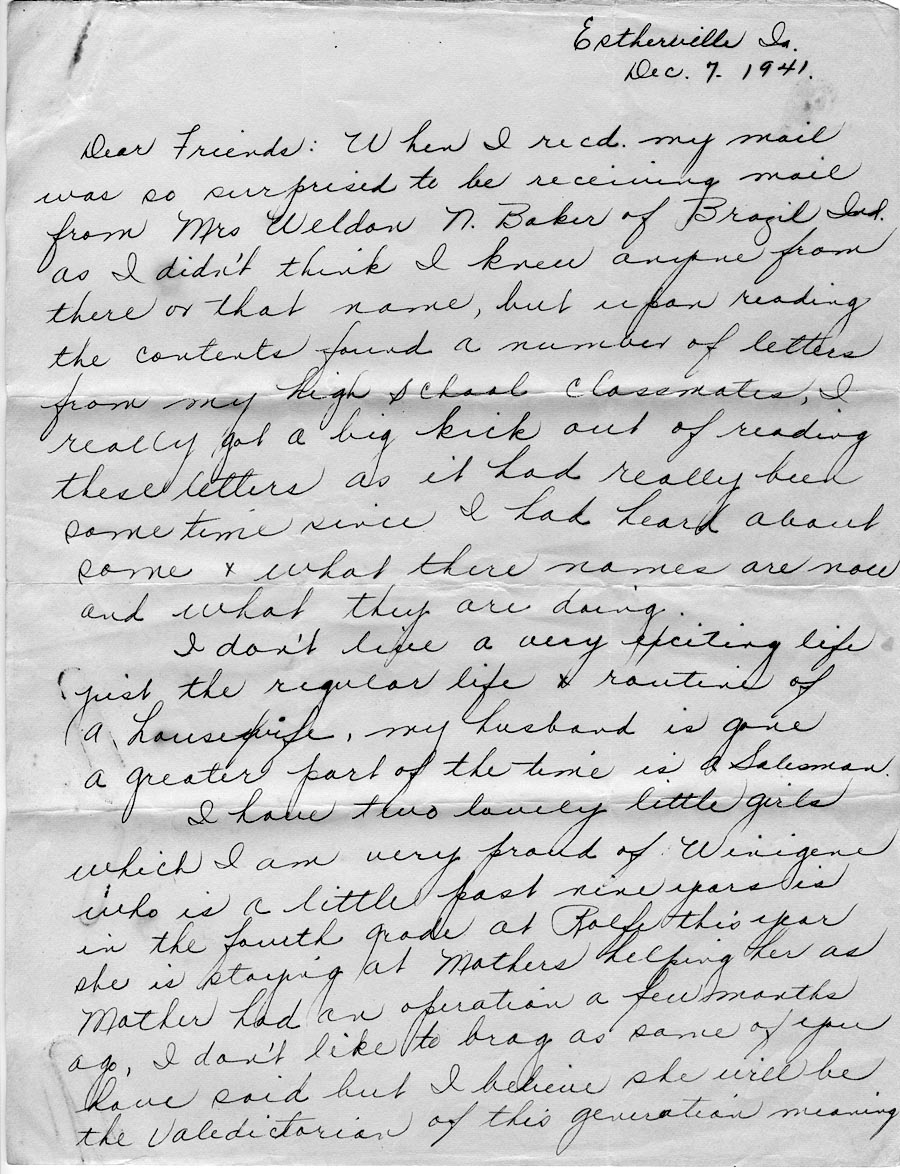 Estherville Ia.
Dec. 7. 1941.
Dear Friends: When I recd. my mail
was so surprised to be receiving mail
from Mrs Weldon N. Baker of Brazil Ind.
as I didn't think I knew anyone from
there or that name, but upon reading
the contents found a number of letters
from my high school classmates, I
really got a big kick out of reading
these letters as it had really been
some time since I had heard about
some & what there names are now
and what they are doing.
I don't live a very exciting life
just the regular life & routine of
a housewife, my husband is gone
a greater part of the time is a Salesman.
I have two lovely little girls
which I am very proud of. Winigene
who is a little past nine years is
in the fourth grade at Rolfe this year
she is staying at Mothers helping her as
Mother had an operation a few months
ago, I don't like to brag as some of you
have said but I believe she will be
the Valedictorian of this generation meaning